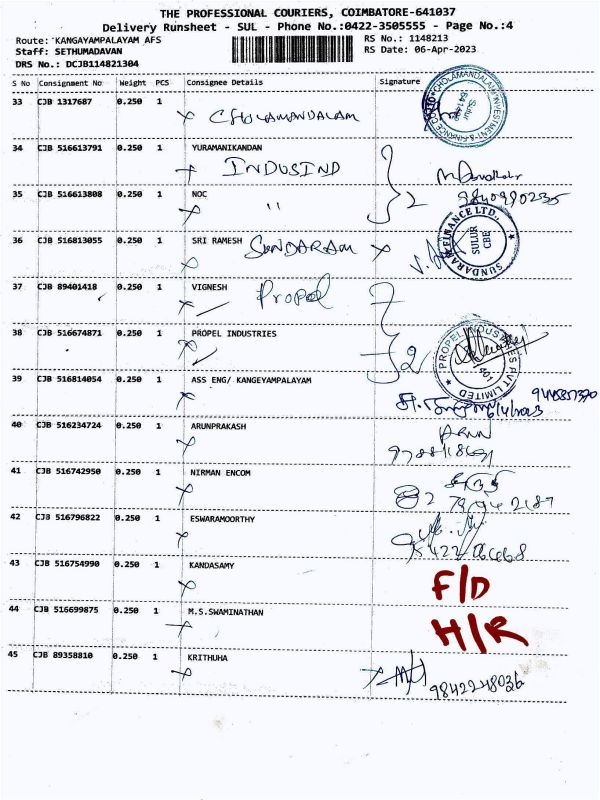 THE PROFESSIONAL COURIERS, COIMBATORE-641037
Delivery Runsheet - SUL - Phone No.:0422-3505555 - Page No.:4
Route: KANGAYAMPALAYAM AFS RS No.: 1148213
Staff: SETHUMADAVAN RS Date: 06-Apr-2023
DRS No.: DCJB114821304
S No Consignment No Weight PCS Consignee Details Signature
33 CJB 1317687 0.250 1
CHOLAMANDALAM
CHOLAMANDALAM INVESTMENT & FINANCE CO LTD
Sulur
34 CJB 516613791 0.250 1 YURAMANIKANDAN
INDUSIND
35 CJB 516613808 0.250 1 NOC
" 2 9840980235
36 CJB 516813055 0.250 1 SRI RAMESH SUNDARAM
SUNDARAM FINANCE LTD.,
SULUR
CBE
37 CJB 89401418 0.250 1 VIGNESH Propel
38 CJB 516674871 0.250 1 PROPEL INDUSTRIES 2
PROPEL INDUSTRIES PVT LIMITED
39 CJB 516814054 0.250 1 ASS ENG/ KANGEYAMPALAYAM
6/4/2023
40 CJB 516234724 0.250 1 ARUNPRAKASH
Arun
41 CJB 516742950 0.250 1 NIRMAN ENCOM
42 CJB 516796822 0.250 1 ESWARAMOORTHY
43 CJB 516754990 0.250 1 KANDASAMY F/D
44 CJB 516699875 0.250 1 M.S.SWAMINATHAN H/R
45 CJB 89358810 0.250 1 KRITHUHA
9842248036